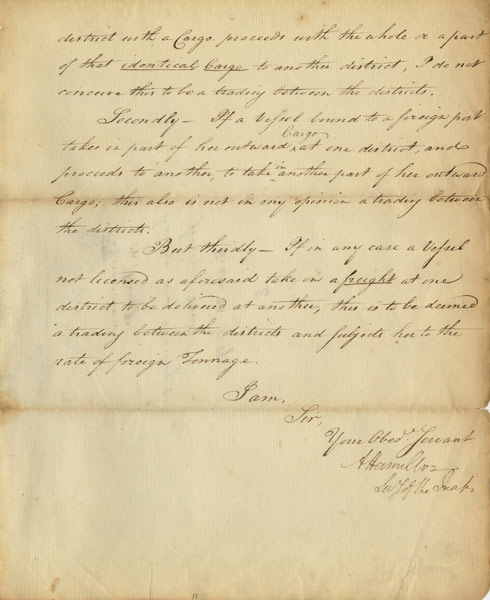 district with a Cargo proceeds with the whole or a part
of that identical Cargo to another district, I do not
conceive this to be a trading between the districts.
Secondly — If a Vessel bound to a foreign port
takes in part of her outward Cargo at one district, and
proceeds to another, to take in another part of her outward
Cargo; this also is not in my opinion a trading between
the districts.
But thirdly — If in any case a Vessel
not licensed as aforesaid take in a freight at one
district to be delivered at another, this is to be deemed
a trading between the districts and subjects her to the
rate of foreign Tonnage.
I am,
Sir,
Your Obedt. Servant
A Hamilton
Secy of the Treasy